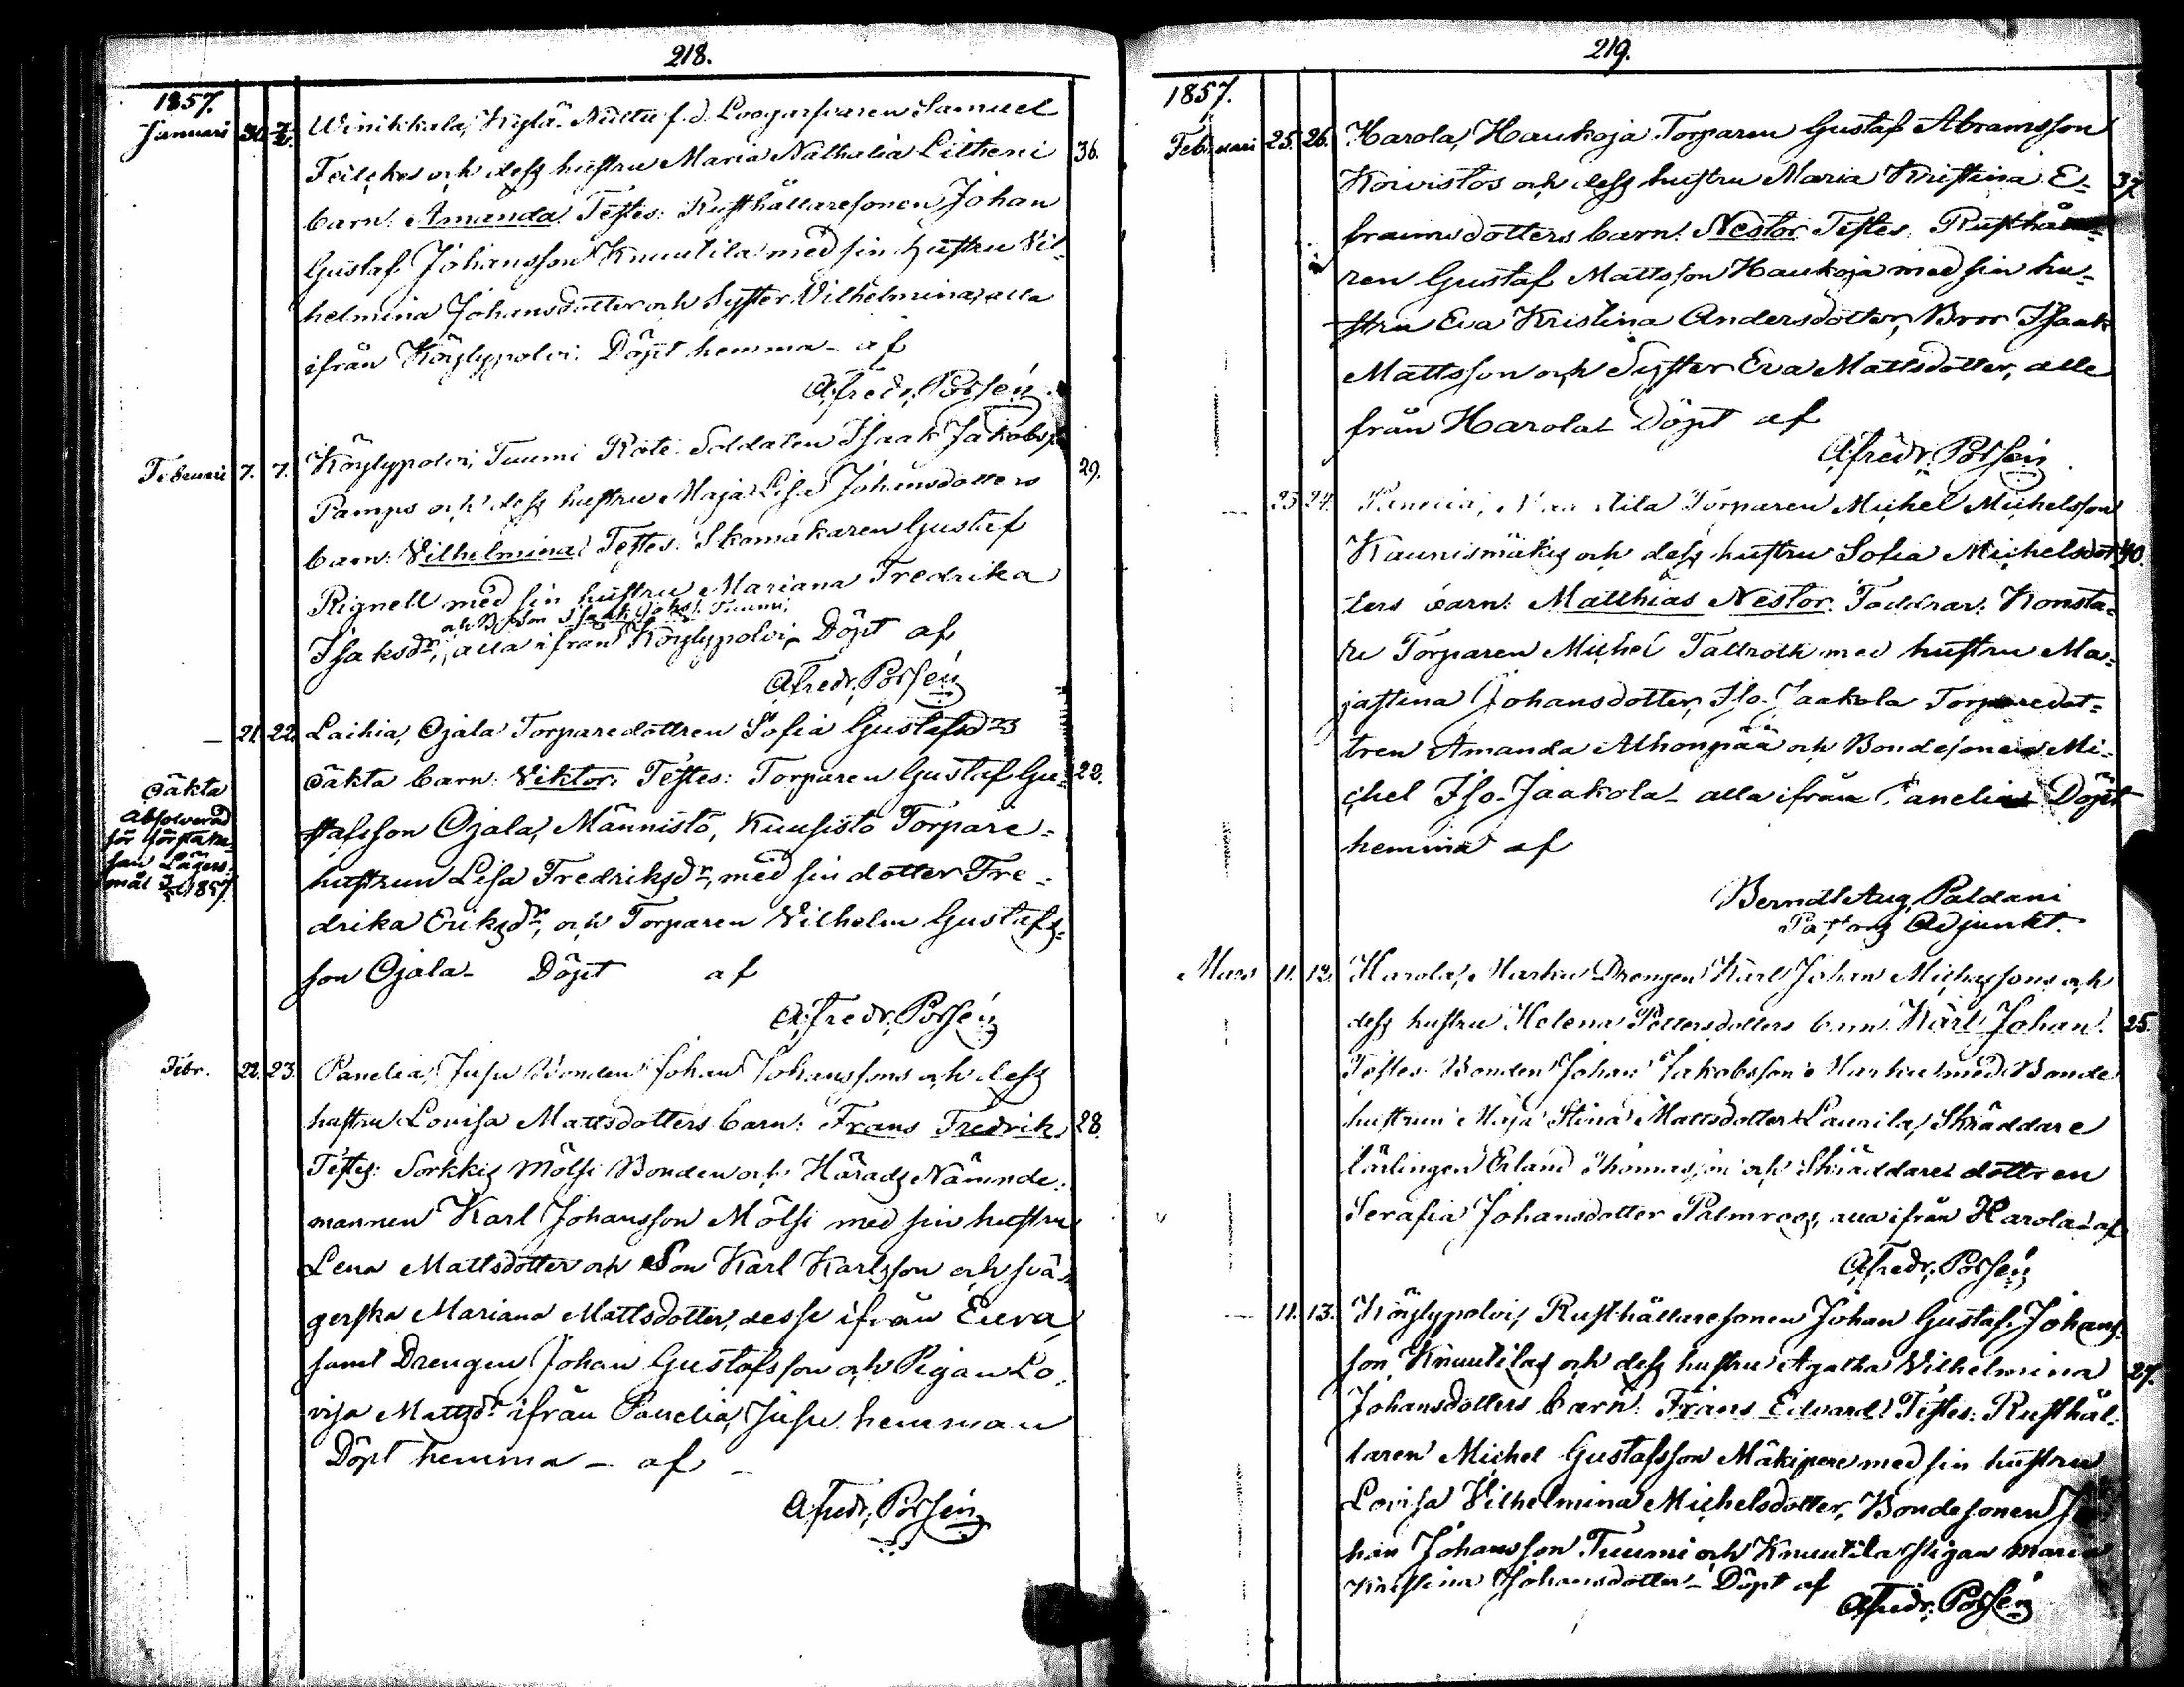 218.
1857.
Januari 30. 7/2. Winikkala, Kylä-Nuttu f.d. Samuel
Feilckes och dess hustru Maria Nathalia Litheni 36.
barn: Amanda. Testes: Rusthållaresonen Johan
Gustaf Johansson Knuutila med sin hustru Vil-
helmina Johansdotter och Syster Vilhelmina, alla
ifrån Köylypolvi. Döpt hemma – af
Afredr. Porsén
Februari 7. 7. Köylypolvi, Tuumi Rote Soldaten Isaak Jakobss.
Pamps och dess hustru Maja Lisa Johansdotters 29.
barn: Vilhelmina. Testes: Skomakaren Gustaf
Rignell med sin hustru Mariana Fredrika
och Tuumi,
Isaksdr, alla ifrån Köylypolvi – Döpt af
Afredr. Porsén
— 21. 22. Laihia, Ojala Torparedottren Sofia Gustafsdrs
oäkta barn: Viktor. Testes: Torparen Gustaf Gu- 22.
stafsson Ojala, Männistö, Kuusisto Torpare-
hustrun Lisa Fredriksdr, med sin dotter Fre-
drika Eriksdr, och Torparen Vilhelm Gustafs-
son Ojala – Döpt af
Afredr. Porsén
Oäkta
Absolverad
för första
Lägers-
mål 1857.
Febr. 22. 23. Panelia, Jusu Bonden Johan Johanssons och dess
hustru Lovisa Mattsdotters barn: Frans Fredrik 28.
Testes: Sorkkis Mölsi Bonden och Härads Nämnde-
mannen Karl Johansson Mölsi med sin hustru
Lena Mattsdotter och Son Karl Karlsson och svä-
gerska Mariana Mattsdotter, desse ifrån Eura,
samt Drengen Johan Gustafsson och Pigan Lo-
visa Mattsdr ifrån Panelia, Jusu hemman
Döpt hemma – af –
Afredr. Porsén
219.
1857.
Februari 25. 26. Harola, Haukoja Torparen Gustaf Abramsson
Koivistos och dess hustru Maria Kristina E- 37.
fraimsdotters barn: Nestor. Testes: Rusthålla-
ren Gustaf Mattsson Haukoja med sin hu-
stru Eva Kristina Andersdotter, Bror Isaak
Mattsson och Syster Eva Mattsdotter, alle
från Harola – Döpt af
Afredr. Porsén
— 23. 24. Panelia, Torparen Michel Michelsson
Kaunismäkis och dess hustru Sofia Michelsdot- 40.
ters barn: Matthias Nestor. Faddrar: Konsta-
ri Torparen Michel Tallroth med hustru Ma-
jastina Johansdotter, Iso-Jaakola Torparedot-
tren Amanda Alhonpää och Bondesonen Mi-
chel Iso-Jaakola – alla ifrån Panelia Döpt
hemma af
Berndt Aug. Paldani
Past:ors Adjunkt.
Mars 11. 12. Harola, Marku Drengen Karl Johan Michelssons och
dess hustru Helena Pettersdotters barn: Karl Johan. 25.
Testes: Bonden Johan Jakobsson Marku med Bonde
hustrun Maja Stina Mattsdotter Laurila, Skräddare
lärlingen Erland Thomasson och Skräddare dottren
Serafia Johansdotter Palmroos, alla ifrån Harola – af
Afredr. Porsén
— 11. 13. Köylypolvi, Rusthållaresonen Johan Gustaf Johans-
son Knuutilas och dess hustru Agatha Vilhelmina 27.
Johansdotters barn: Frans Edvard. Testes: Rusthål-
laren Michel Gustafsson Mäkipere med sin hustru
Lovisa Vilhelmina Michelsdotter, Bondesonen Jo-
han Johansson Tuumi och Knuutila Pigan Maria
Kristina Johansdotter – Döpt af
Afredr. Porsén